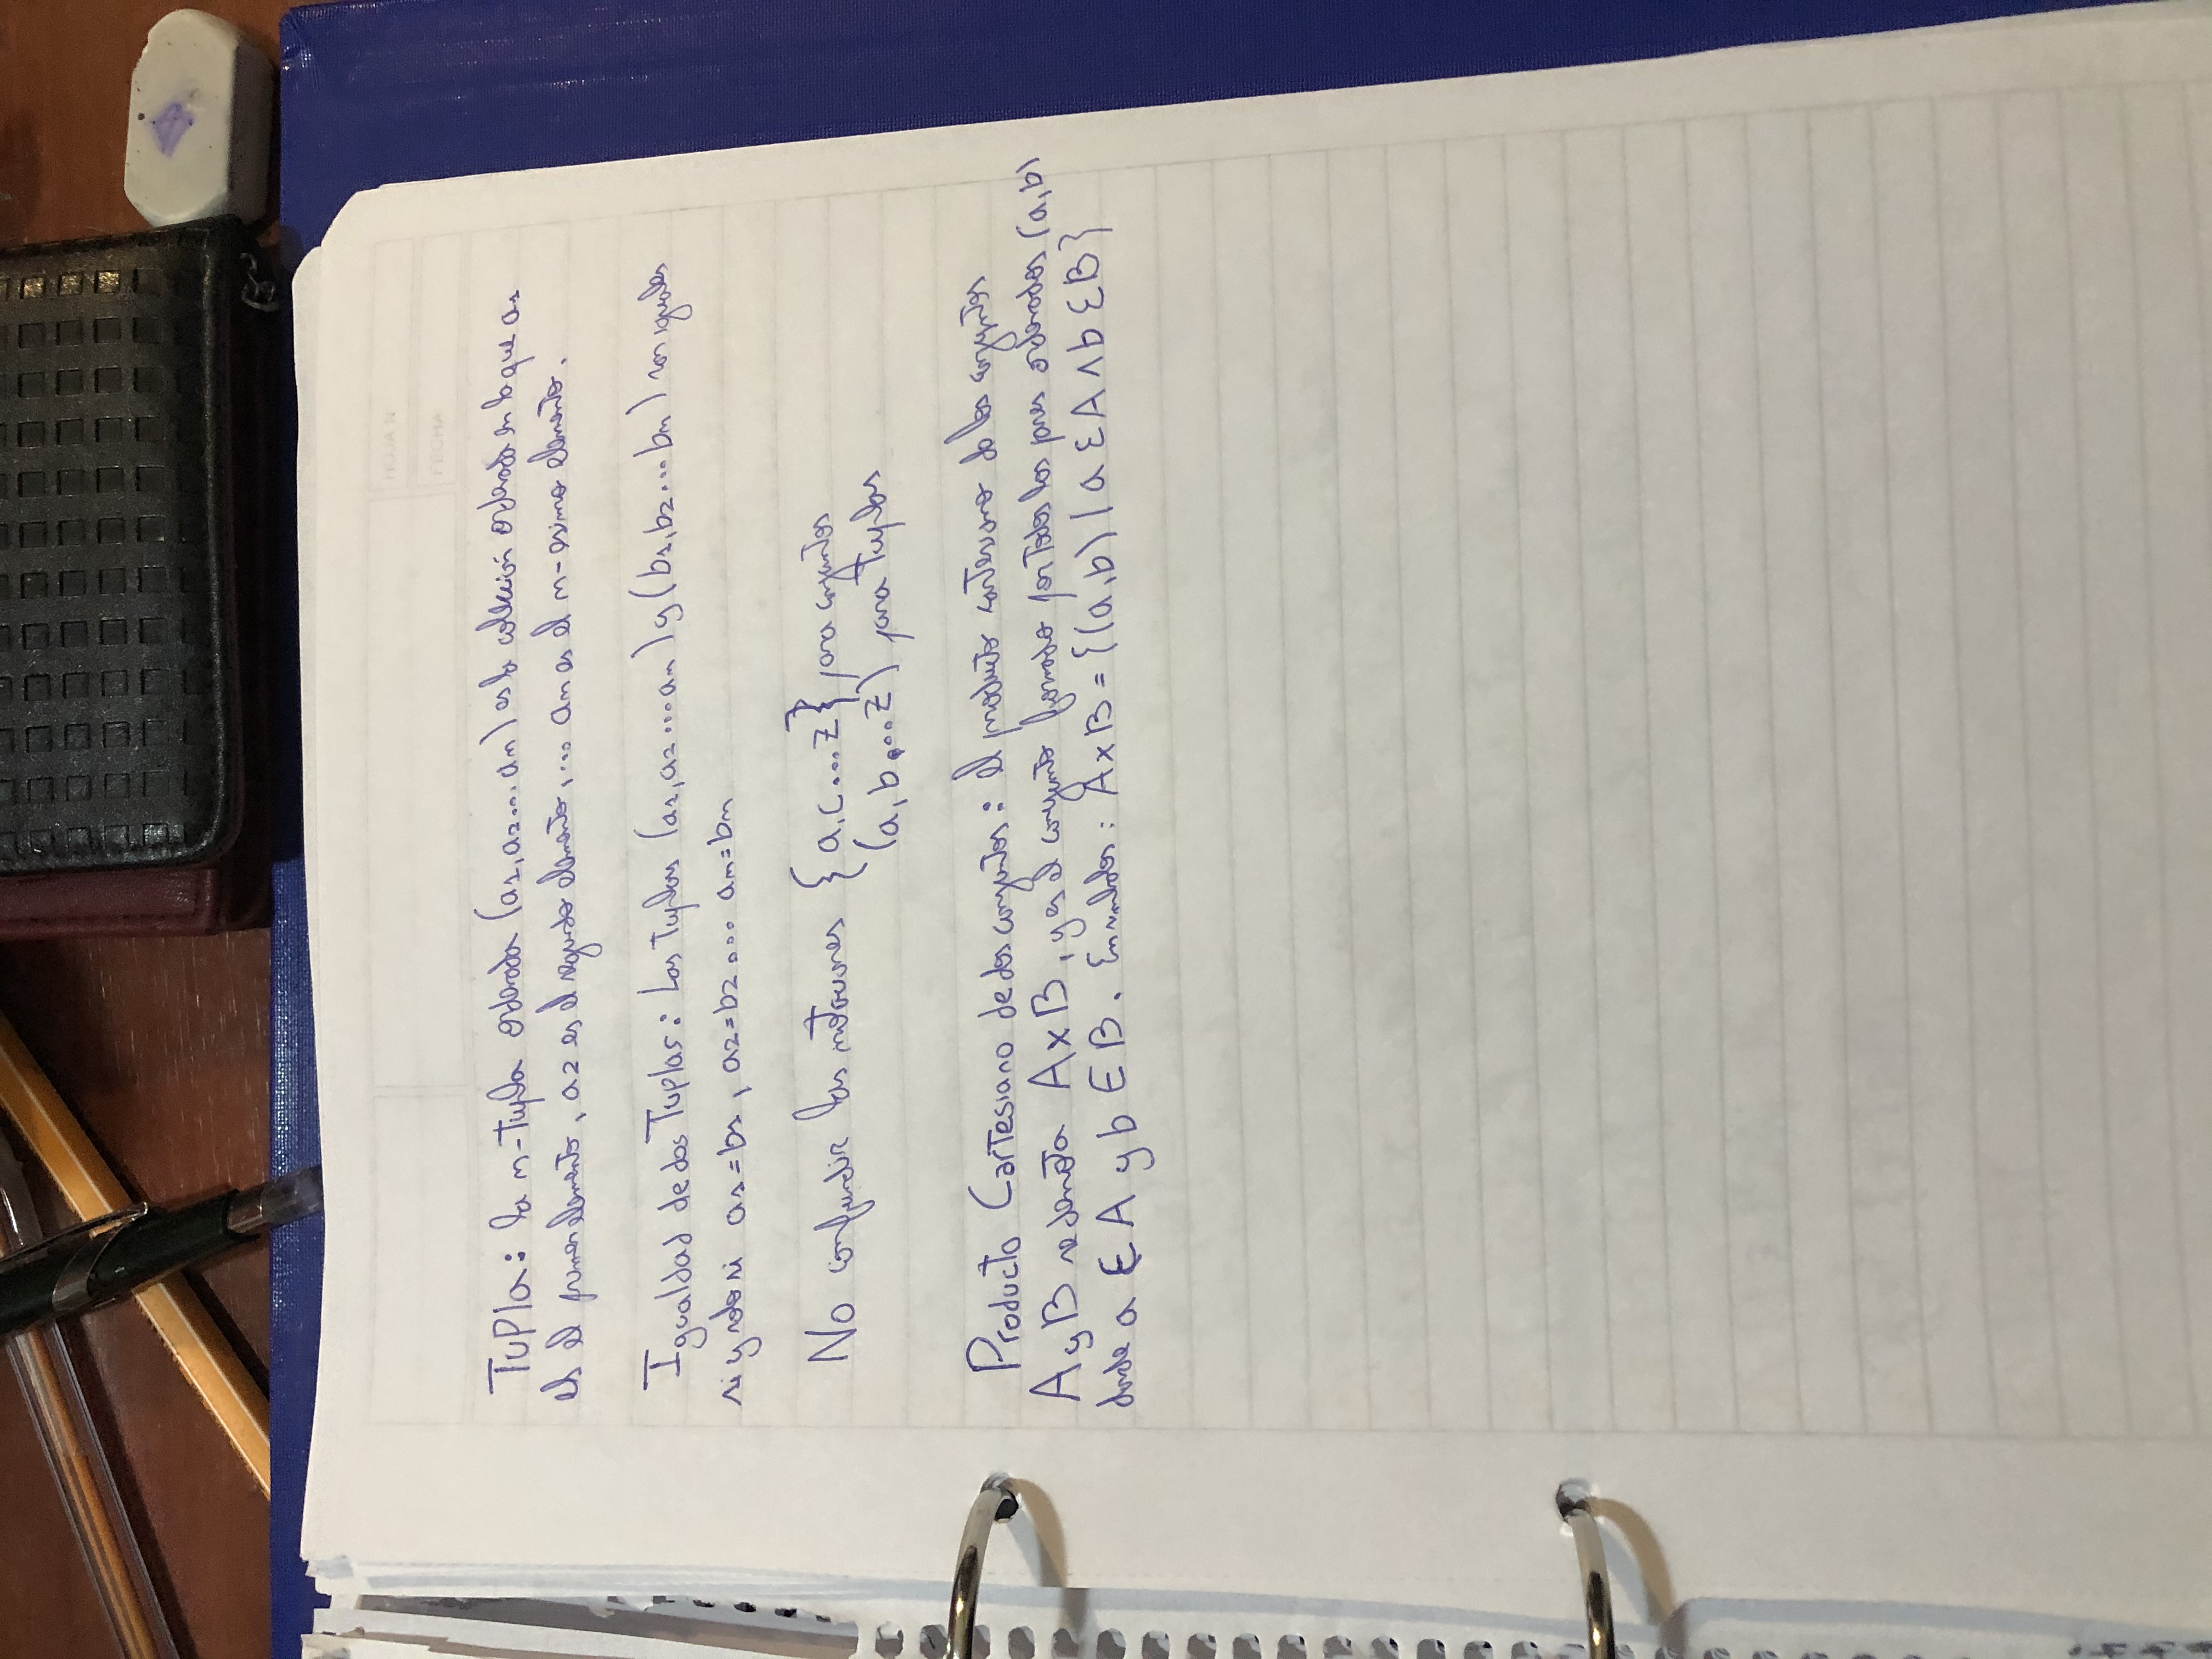 HOJA N
FECHA
Tupla: la n-tupla ordenada (a1, a2... an) es la colección ordenada en la que a1
es el primer elemento, a2 es el segundo elemento, ... an es el n-esimo elemento.
Igualdad de dos Tuplas: Las Tuplas (a1, a2 ... an) y (b1, b2 ... bn) son iguales
si y solo si a1 = b1, a2 = b2 ... an = bn
No confundir las notaciones {a, c ... z} para conjuntos
(a, b, ... z) para Tuplas
Producto Cartesiano de dos conjuntos: el producto cartesiano de los conjuntos
A y B se denota A x B, y es el conjunto formado por todos los pares ordenados (a, b)
donde a ∈ A y b ∈ B. En simbolos: A x B = {(a, b) / a ∈ A ∧ b ∈ B}